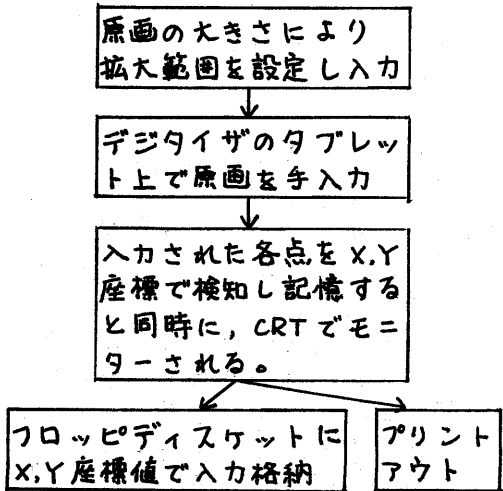 原画の大きさにより
拡大範囲を設定し入力
デジタイザのタブレッ
ト上で原画を手入力
入力された各点をX,Y
座標で検知し記憶する
と同時に,CRTでモニ
ターされる。
フロッピディスケットに
X,Y座標値で入力格納
プリント
アウト